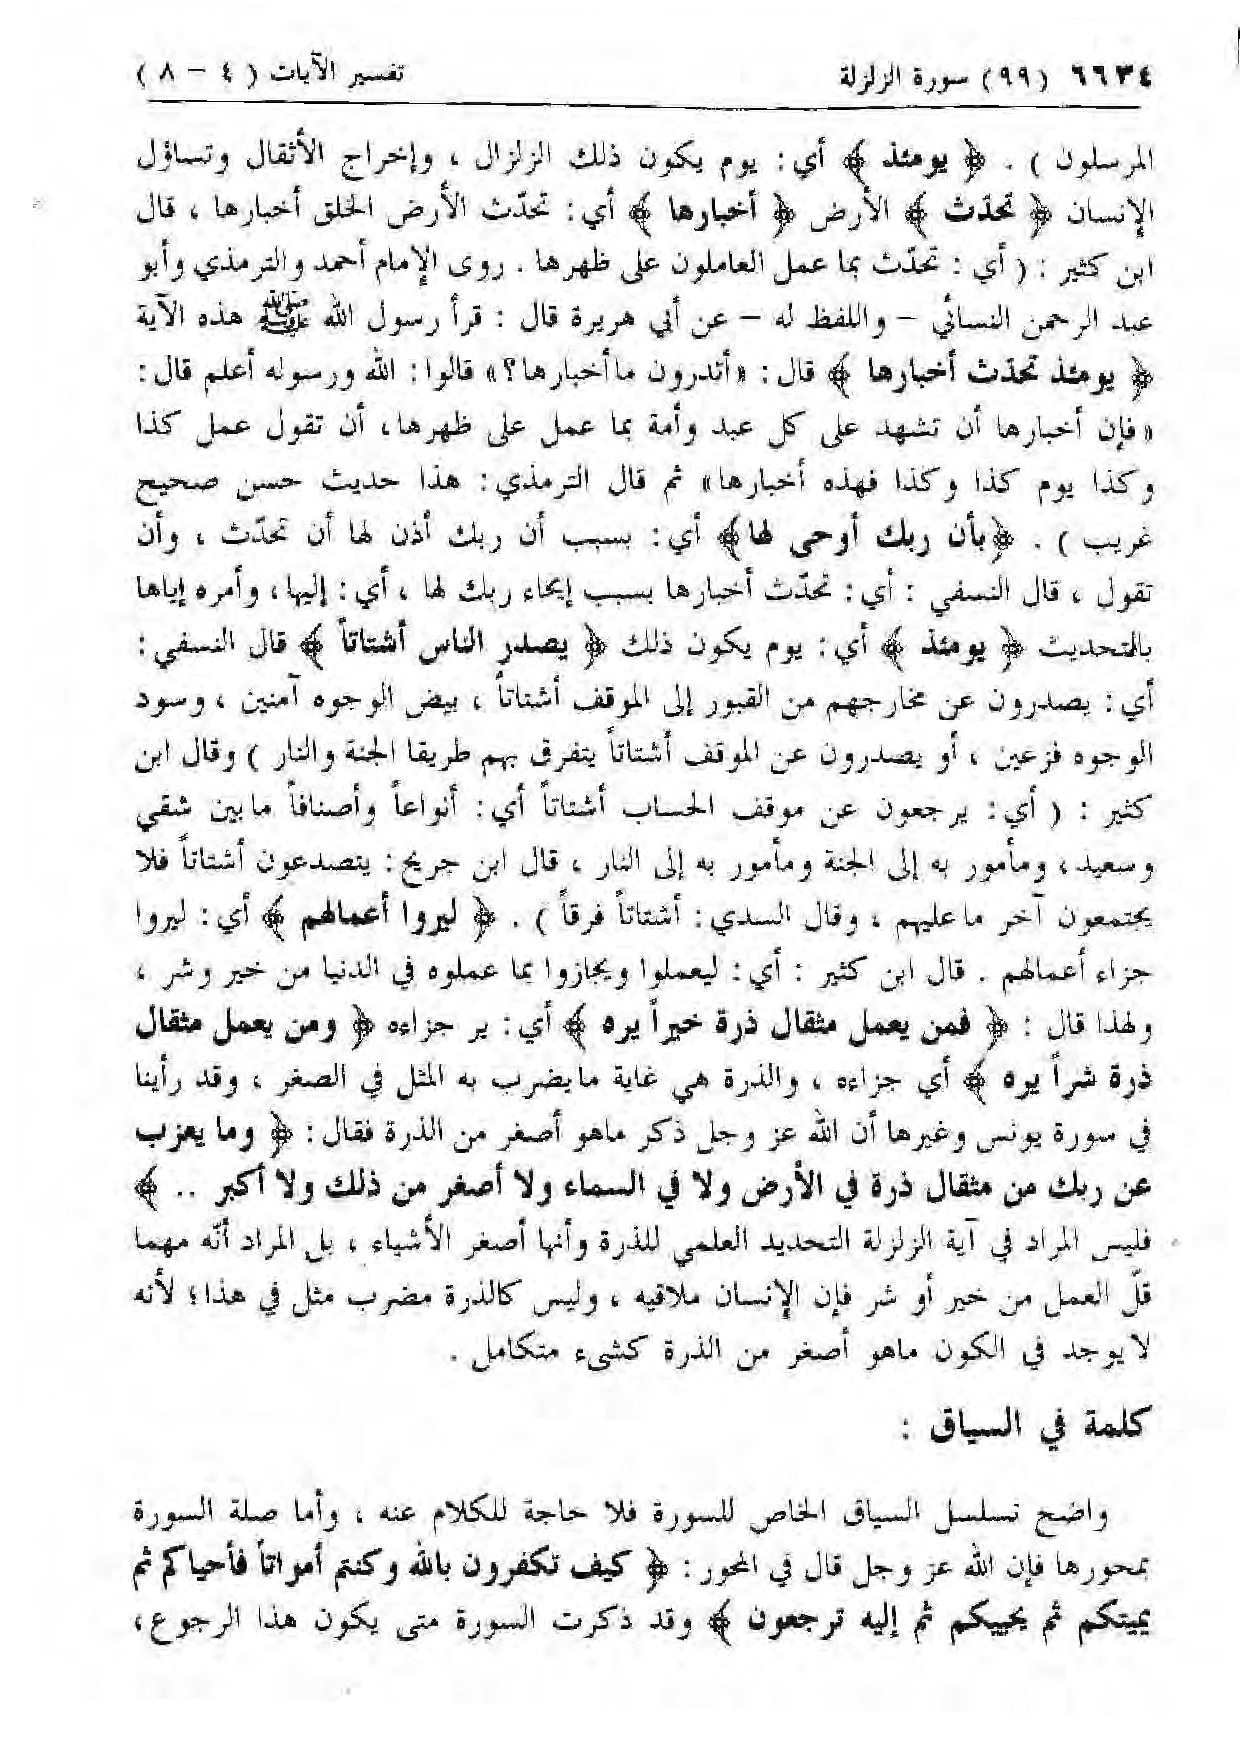 ٦٦٣٤ (٩٩) سورة الزلزلة تفسير الآيات (٤ - ٨)
المرسلون ) . ﴿ يومئذ ﴾ أي: يوم يكون ذلك الزلزال ، وإخراج الأثقال وتساؤل
الإنسان ﴿ تحدّث ﴾ الأرض ﴿ أخبارها ﴾ أي: تحدّث الأرض الخلق أخبارها ، قال
ابن كثير : ( أي : تحدّث بما عمل العاملون على ظهرها . روى الإمام أحمد والترمذي وأبو
عبد الرحمن النسائي - واللفظ له - عن أبي هريرة قال : قرأ رسول الله ﷺ هذه الآية
﴿ يومئذ تحدّث أخبارها ﴾ قال : «أتدرون ماأخبارها؟» قالوا: الله ورسوله أعلم قال:
«فإن أخبارها أن تشهد على كل عبد وأمة بما عمل على ظهرها، أن تقول عمل كذا
وكذا يوم كذا وكذا فهذه أخبارها» ثم قال الترمذي: هذا حديث حسن صحيح
غريب ) . ﴿بأن ربك أوحى لها﴾ أي: بسبب أن ربك أذن لها أن تحدّث ، وأن
تقول ، قال النسفي : أي: تحدّث أخبارها بسبب إيحاء ربك لها ، أي: إليها، وأمره إياها
بالتحديث ﴿ يومئذ ﴾ أي: يوم يكون ذلك ﴿ يصدر الناس أشتاتاً ﴾ قال النسفي:
أي: يصدرون عن مخارجهم من القبور إلى الموقف أشتاتاً ، بيض الوجوه آمنين ، وسود
الوجوه فزعين ، أو يصدرون عن الموقف أشتاتاً يتفرق بهم طريقا الجنة والنار ) وقال ابن
كثير : ( أي: يرجعون عن موقف الحساب أشتاتاً أي: أنواعاً وأصنافاً مابين شقي
وسعيد، ومأمور به إلى الجنة ومأمور به إلى النار ، قال ابن جريج: يتصدعون أشتاتاً فلا
يجتمعون آخر ماعليهم ، وقال السدي: أشتاتاً فرقاً ) . ﴿ ليروا أعمالهم ﴾ أي: ليروا
جزاء أعمالهم . قال ابن كثير : أي: ليعملوا ويجازوا بما عملوه في الدنيا من خير وشر ،
ولهذا قال : ﴿ فمن يعمل مثقال ذرة خيراً يره ﴾ أي: ير جزاءه ﴿ ومن يعمل مثقال
ذرة شراً يره ﴾ أي جزاءه ، والذرة هي غاية مايضرب به المثل في الصغر ، وقد رأينا
في سورة يونس وغيرها أن الله عز وجل ذكر ماهو أصغر من الذرة فقال : ﴿ وما يعزب
عن ربك من مثقال ذرة في الأرض ولا في السماء ولا أصغر من ذلك ولا أكبر .. ﴾
فليس المراد في آية الزلزلة التحديد العلمي للذرة وأنها أصغر الأشياء ، بل المراد أنّه مهما
قلّ العمل من خير أو شر فإن الإنسان ملاقيه ، وليس كالذرة مضرب مثل في هذا؛ لأنه
لايوجد في الكون ماهو أصغر من الذرة كشىء متكامل .
كلمة في السياق :
واضح تسلسل السياق الخاص للسورة فلا حاجة للكلام عنه ، وأما صلة السورة
بمحورها فإن الله عز وجل قال في المحور: ﴿ كيف تكفرون بالله وكنتم أمواتاً فأحياكم ثم
يميتكم ثم يحييكم ثم إليه ترجعون ﴾ وقد ذكرت السورة متى يكون هذا الرجوع،